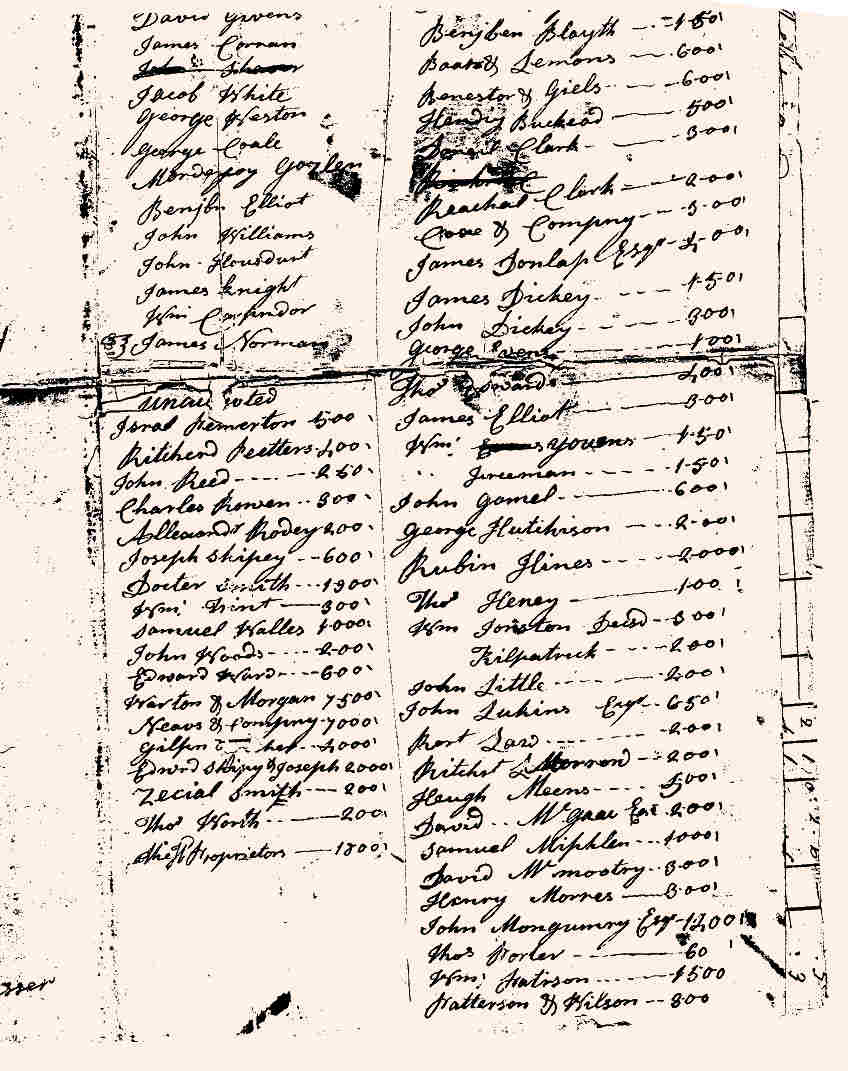 David Givens
James Cornan
Jacob White
George Weston
George Coale
Mordgxoy Gozlen
Benjbn Elliot
John Williams
John Housdurt
James Knight
Wm
33 James Norman
Unau oted
Isral Pemerton 500
Ritcherd Peetters 400
John Reed 250
Charles Rowen 300
Allexandr Rodey 200
Joseph Shipey 600
Docter Smith 1300
Wm 300
Samuel Walles 1000
John Woods 200
Edward Ward 600
Warton & Morgan 7500
Neavs & Compny 7000
Gilpin 4000
Edwrd Shipy & Joseph 2000
Zecial Smith 200
Thos Worth 200
the Proprietors 1800
Benjben Blayth 150
& Lemons 600
Benestor & Giels 600
Buckead 500
Clark 300
Reachal Clark 200
Coxe & Compny 300
James Donlap Esqr 400
James Dickey 150
John Dickey 300
George 100
Thos Edwards 400
James Elliot 300
Wm Yowens 150
Freeman 150
John Gamel 600
George Hutchison 200
Rubin Hines 2000
Thos Heney 100
Wm Jonston Decsd 300
Kilpatrick 200
John Little 200
John Lukins Esqr 650
200
Ritchd Merron 200
Heugh Meens 500
David McGaw Esr 200
Samuel Miphlen 1000
David Mcmostry 300
Henry Morres 300
John Mongumry Esqr 1200
Thos Porter 60
Wm Patrson 1500
Patterson & Wilson 300